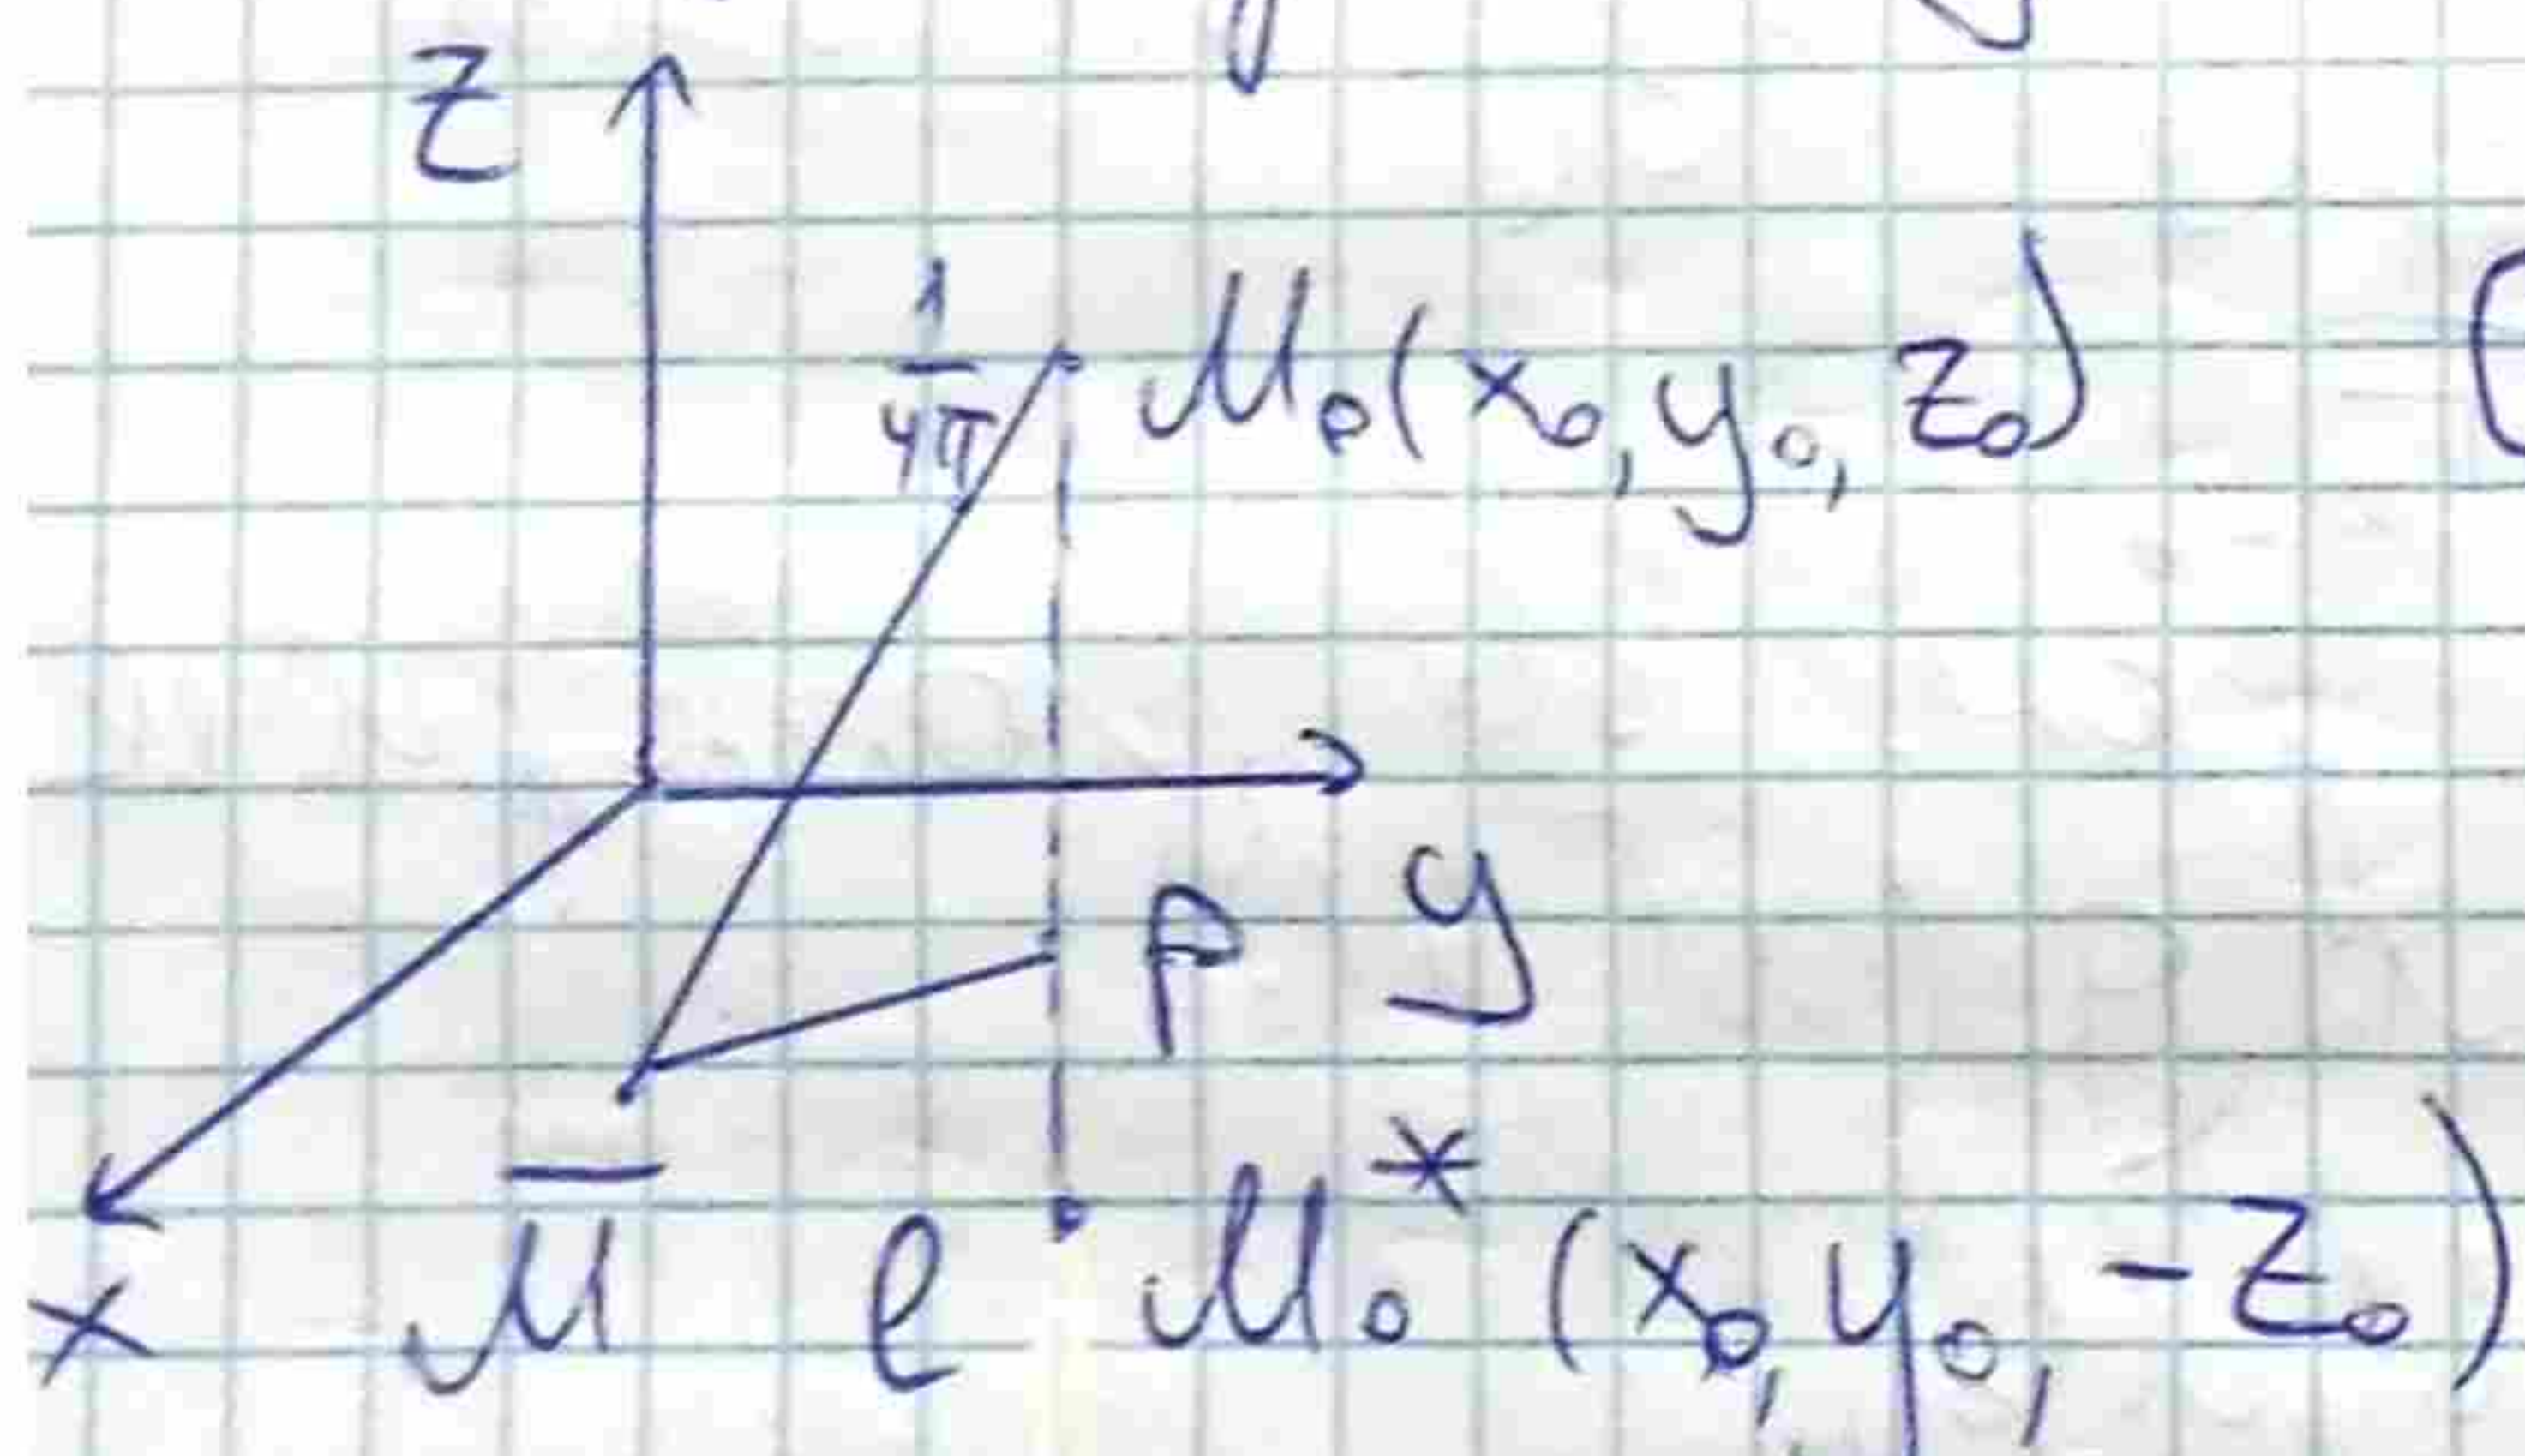 z
1/4π M₀(x₀, y₀, z₀)
P y
x M̅ e M₀* (x₀, y₀, -z₀)